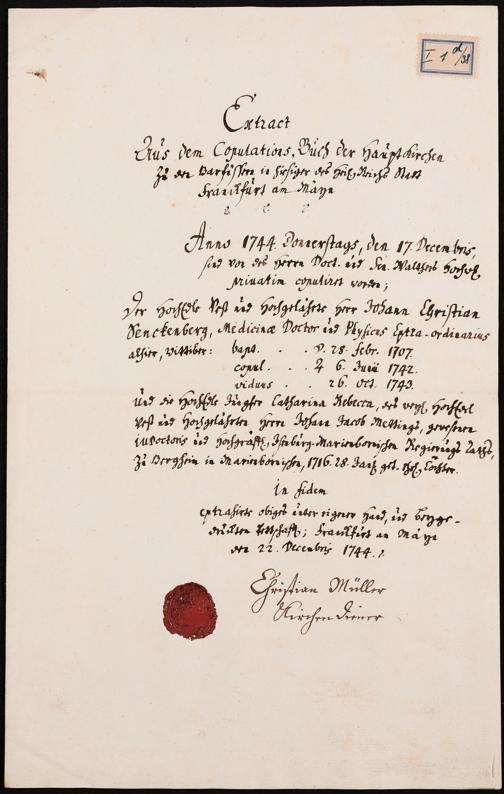 I 1 d/38
Extract
Aus dem Copulations-Buch der Haupt Kirchen
Zu den Barfüssern in hiesiger des Heil. Reichs Statt
Franckfurt am Mayn
Anno 1744. Donnerstags, den 17. Decembris,
sind von des Herrn Doct. und Sen. Walthers Hochw.
privatim copuliret worden;
Der HochEdle Vest und Hochgelährte Herr Johann Christian
Senckenberg, Medicinæ Doctor und Physicus Extra-ordinarius
alhier, Wittiber: bapt. . . . 28. Febr. 1707.
copul. . . . 6. Junii 1742.
viduus . . . 26. Oct. 1743.
Und die HochEdle Jungfer Catharina Rebecca, des weyl. HochEdel
Vest und Hochgelährten Herrn Johann Jacob Mettings, gewesenen
JurDoctoris und Hochgräffl. Isenburg-Marienbornischen Regierungs Raths,
Zu Bergheim in Marienbornischen, 1716. 28. geb. Tochter.
In fidem
extrahirte obiges unter eigener Hand, und beyge-
druckten Pettschafft; Franckfurt am Mayn
den 22. Decembris 1744.
Christian Müller
Kirchendiener